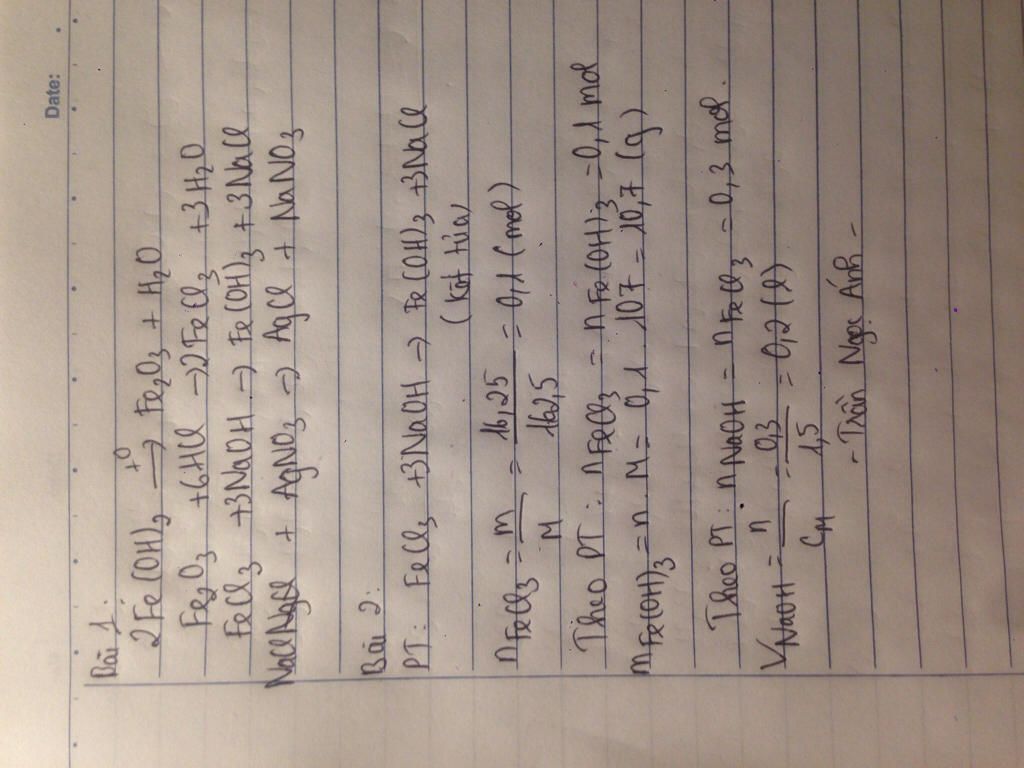 Date:
Bài 1:
2Fe(OH)3 →t0 Fe2O3 + H2O
Fe2O3 +6HCl → 2FeCl3 +3H2O
FeCl3 +3NaOH → Fe(OH)3 +3NaCl
NaCl + AgNO3 → AgCl + NaNO3
Bài 2:
PT: FeCl3 +3NaOH → Fe(OH)3 +3NaCl
(kết tủa)
nFeCl3 = m/M = 16,25/162,5 = 0,1 (mol)
Theo PT: nFeCl3 = nFe(OH)3 = 0,1 mol
mFe(OH)3 = n. M = 0,1. 107 = 10,7 (g)
Theo PT: nNaOH = nFeCl3 = 0,3 mol.
VNaOH = n/CM = 0,3/1,5 = 0,2 (l)
- Trần Ngọc Ánh -